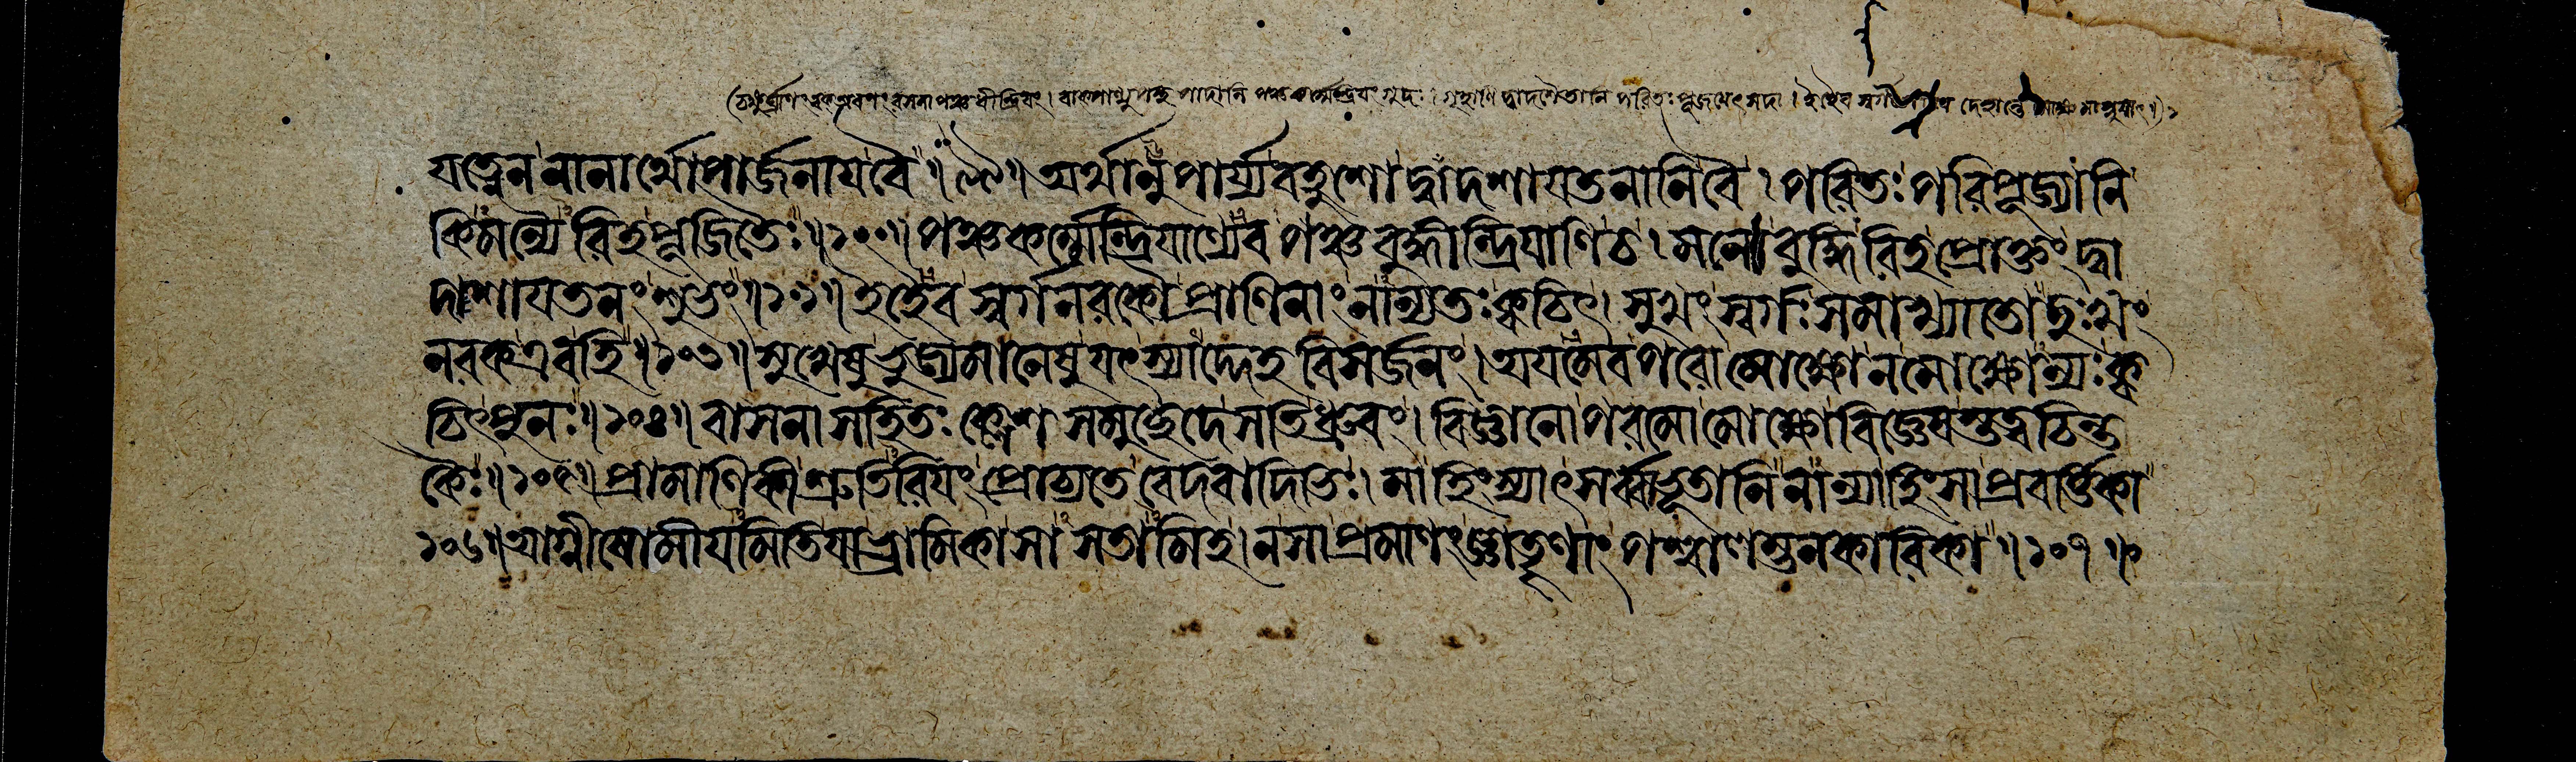 চক্ষুর্ঘ্রাণং ত্বক্ শ্রবণং রসনা পঞ্চ ধীন্দ্রিযং । পঞ্চ গুদং । গৃহাণি দ্বাদশৈতানি পরিতঃ পূজযেৎ সদা । ইহৈব দেহান্তে মোক্ষমাপ্নুযাৎ॥
যত্নেন নানার্থোপার্জনায বৈ ॥৯৯॥ অর্থানুপার্জ্য বহুশো দ্বাদশাযতনানি বৈ । পরিতঃ পরিপূজ্যানি
কিমন্যৈরিহ পূজিতৈঃ॥১০০॥ পঞ্চ কর্ম্মেন্দ্রিযাণ্যেব পঞ্চ বুদ্ধীন্দ্রিযাণি চ । মনো বুদ্ধিরিহ প্রোক্তং দ্বা
দশাযতনং শুভং॥১০১॥ ইহৈব স্বর্গনরকৌ প্রাণিনাং নান্যতঃ ক্বচিৎ । সুখং স্বর্গঃ সমাখ্যাতো দুঃখং
নরক এব হি॥১০৩॥ সুখেষু ভুজ্যমানেষু যৎ স্যাদ্দেহবিসর্জনং । অযমেব পরো মোক্ষো ন মোক্ষোন্যঃ ক্ব
চিৎ পুনঃ॥১০৪॥ বাসনাসহিতঃ ক্লেশসমুচ্ছেদে সতি ধ্রুবং । বিজ্ঞানোপরমো মোক্ষো বিজ্ঞেযস্তত্ত্বচিন্ত
কৈঃ॥১০৫॥ প্রামাণিকী শ্রুতিরিযং প্রোচ্যতে বেদবাদিভিঃ । মা হিংস্যাৎ সর্ব্বভূতানি নান্যা হিংসা প্রবর্ত্তিকা
১০৬॥ অগ্নীষোমীযমিতি যা ভ্রামিকা সা সতামিহ । ন সা প্রমাণং জ্ঞাতৄণাং পশ্বালম্ভনকারিকা॥১০৭॥